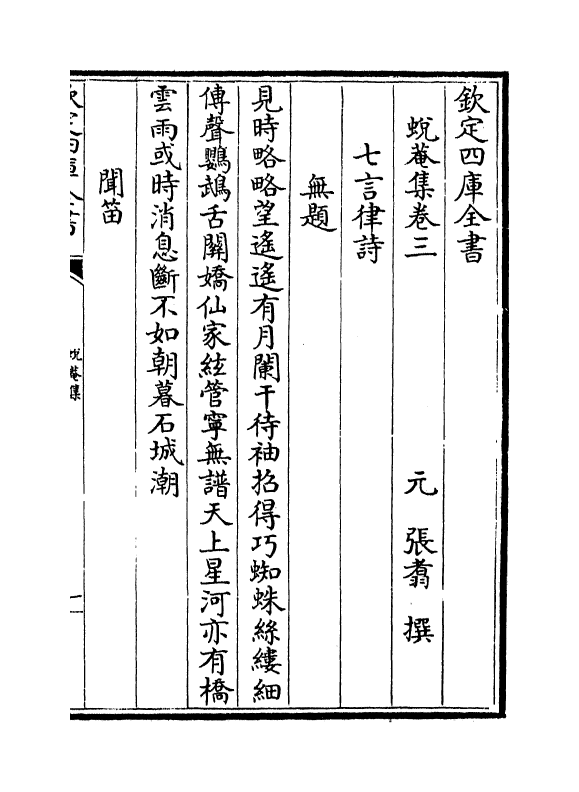 欽定四庫全書
蛻菴集卷三　元　張翥　撰
七言律詩
無題
見時略略望遙遙有月闌干待袖招得巧蜘蛛絲縷細
傳聲鸚鵡舌關嬌仙家絃管寧無譜天上星河亦有橋
雲雨或時消息斷不如朝暮石城潮
聞笛
蛻菴集
一